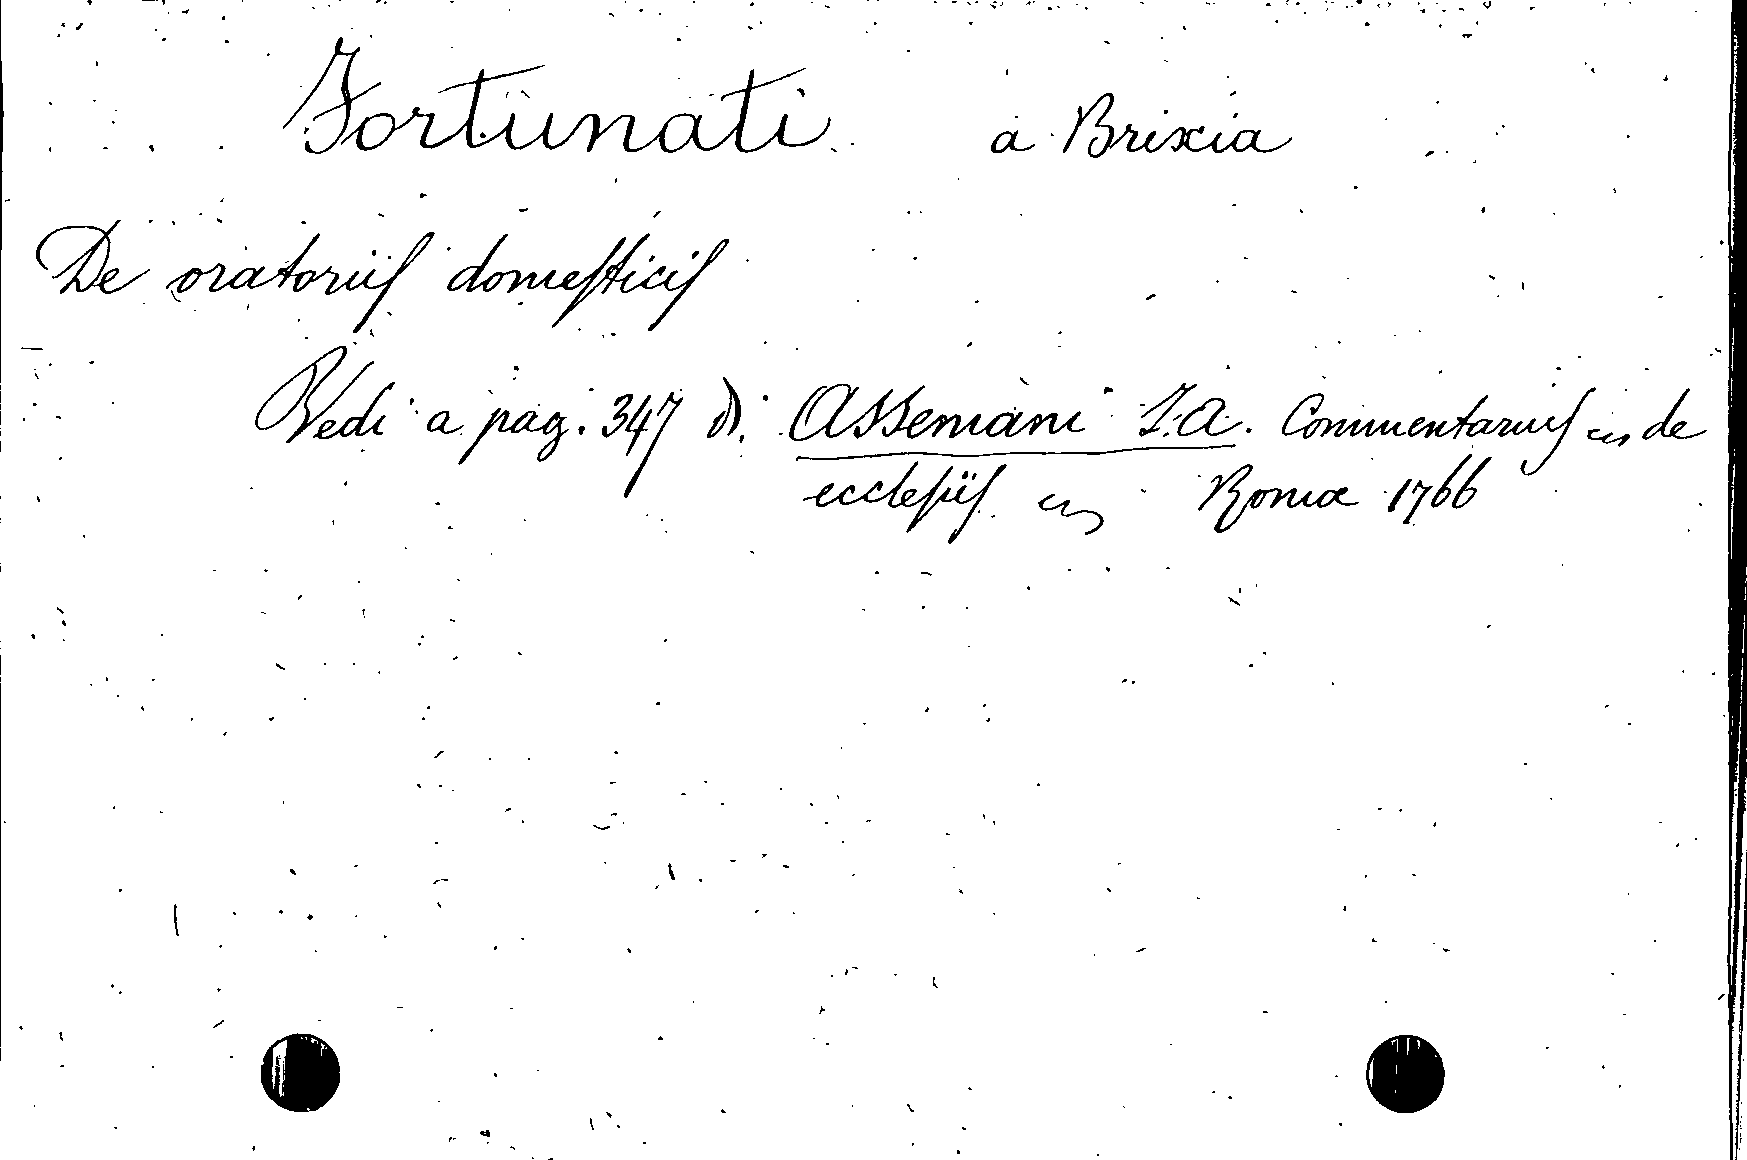 Fortunati a Brixia
De oratoriis domesticis
Vedi a pag. 347 di Assemani I.A. Commentarius de
ecclesiis Romæ 1766